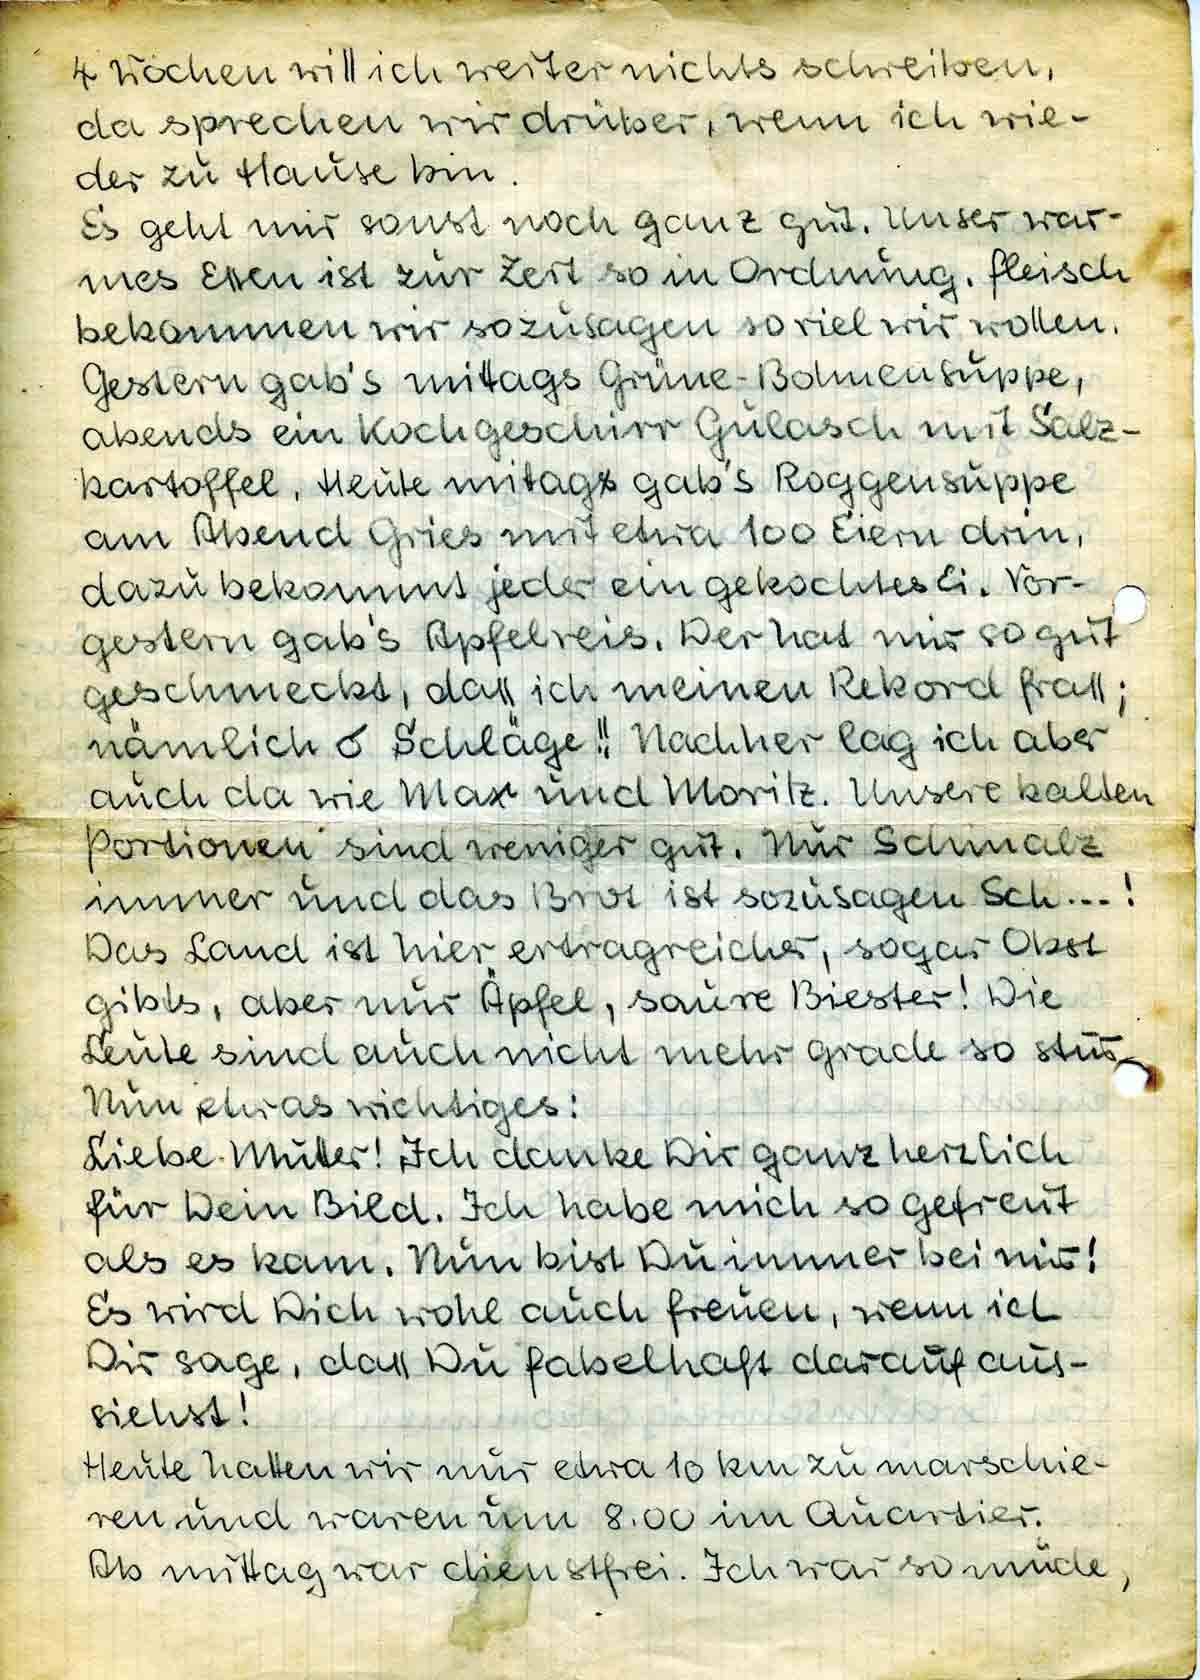 4 Wochen will ich weiter nichts schreiben,
da sprechen wir drüber, wenn ich wie-
der zu Hause bin.
Es geht mir sonst noch ganz gut. Unser war-
mes Essen ist zur Zeit so in Ordnung. Fleisch
bekommen wir sozusagen so viel wir wollen.
Gestern gab's mittags Grüne-Bohnensuppe,
abends ein Kochgeschirr Gulasch mit Salz-
kartoffel. Heute mitags gab's Roggensuppe
am Abend Gries mit etwa 100 Eiern drin,
dazu bekommt jeder ein gekochtes Ei. Vor-
gestern gab's Apfelreis. Der hat mir so gut
geschmeckt, daß ich meinen Rekord fraß;
nämlich 6 Schläge!! Nachher lag ich aber
auch da wie Max und Moritz. Unsere kalten
Portionen sind weniger gut. Nur Schmalz
immer und das Brot ist sozusagen Sch...!
Das Land ist hier ertragreicher, sogar Obst
gibts, aber nur Äpfel, saure Biester! Die
Leute sind auch nicht mehr grade so stur.
Nun etwas wichtiges:
Liebe Mutter! Ich danke Dir ganz herzlich
für Dein Bild. Ich habe mich so gefreut
als es kam. Nun bist Du immer bei mir!
Es wird Dich wohl auch freuen, wenn ich
Dir sage, daß Du fabelhaft darauf aus-
siehst!
Heute hatten wir nur etwa 10 km zu marschie-
ren und waren um 8.00 im Quartier.
Ab mittag war dienstfrei. Ich war so müde,